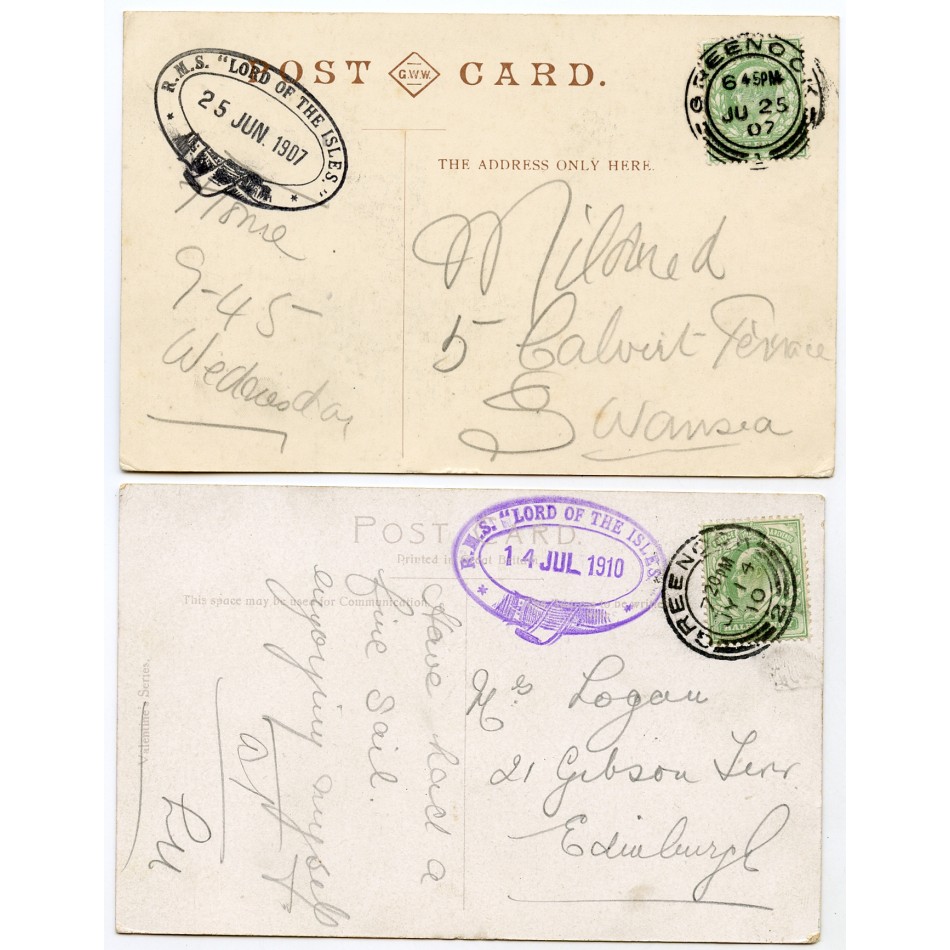 POST G.W.W. CARD.
R.M.S. "LORD OF THE ISLES."
25 JUN. 1907
GREENOCK
6 45PM
JU 25
07
1
THE ADDRESS ONLY HERE.
Home
9-45
Wednesday
Mildred
5 Calvert Terrace
Swansea
POST CARD.
Printed in Great Britain
This space may be used for Communication
R.M.S. "LORD OF THE ISLES"
14 JUL 1910
GREENOCK
7 20PM
JY 14
10
2
HALF
Valentine's Series.
Have had a
fine sail.
enjoying myself
Mrs Logan
21 Gibson Terr
Edinburgh